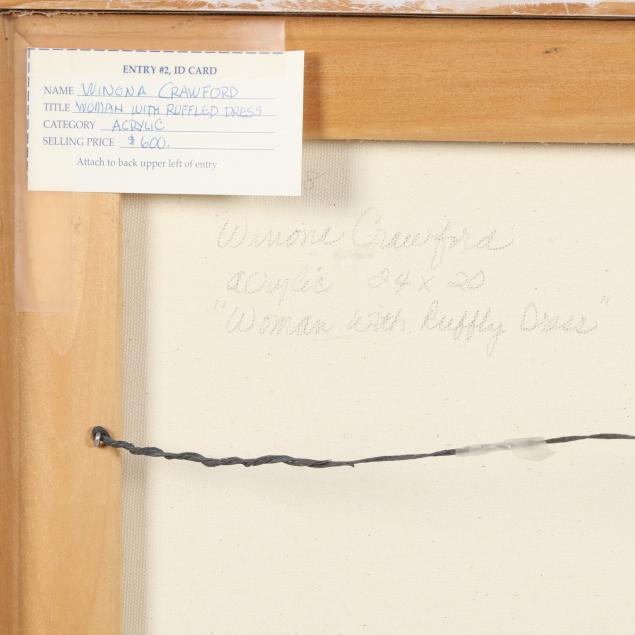 ENTRY #2, ID CARD
NAME WINONA CRAWFORD
TITLE WOMAN WITH RUFFLED DRESS
CATEGORY ACRYLIC
SELLING PRICE $600.
Attach to back upper left of entry
8
Winona Crawford
acrylic 24 x 20
"Woman With Ruffly Dress"